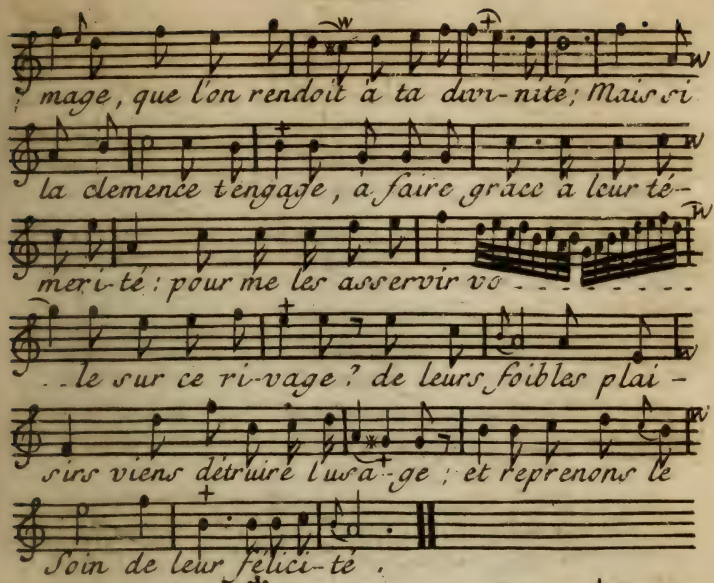 mage, que l'on rendoit à ta divi-nité; Mais si
la clemence t'engage, à faire grace à leur té-
meri-té : pour me les asservir vo - - - - - - -
- - le sur ce ri-vage ? de leurs foibles plai -
sirs viens détruire l'usa - ge ; et reprenons le
Soin de leur félici-té .